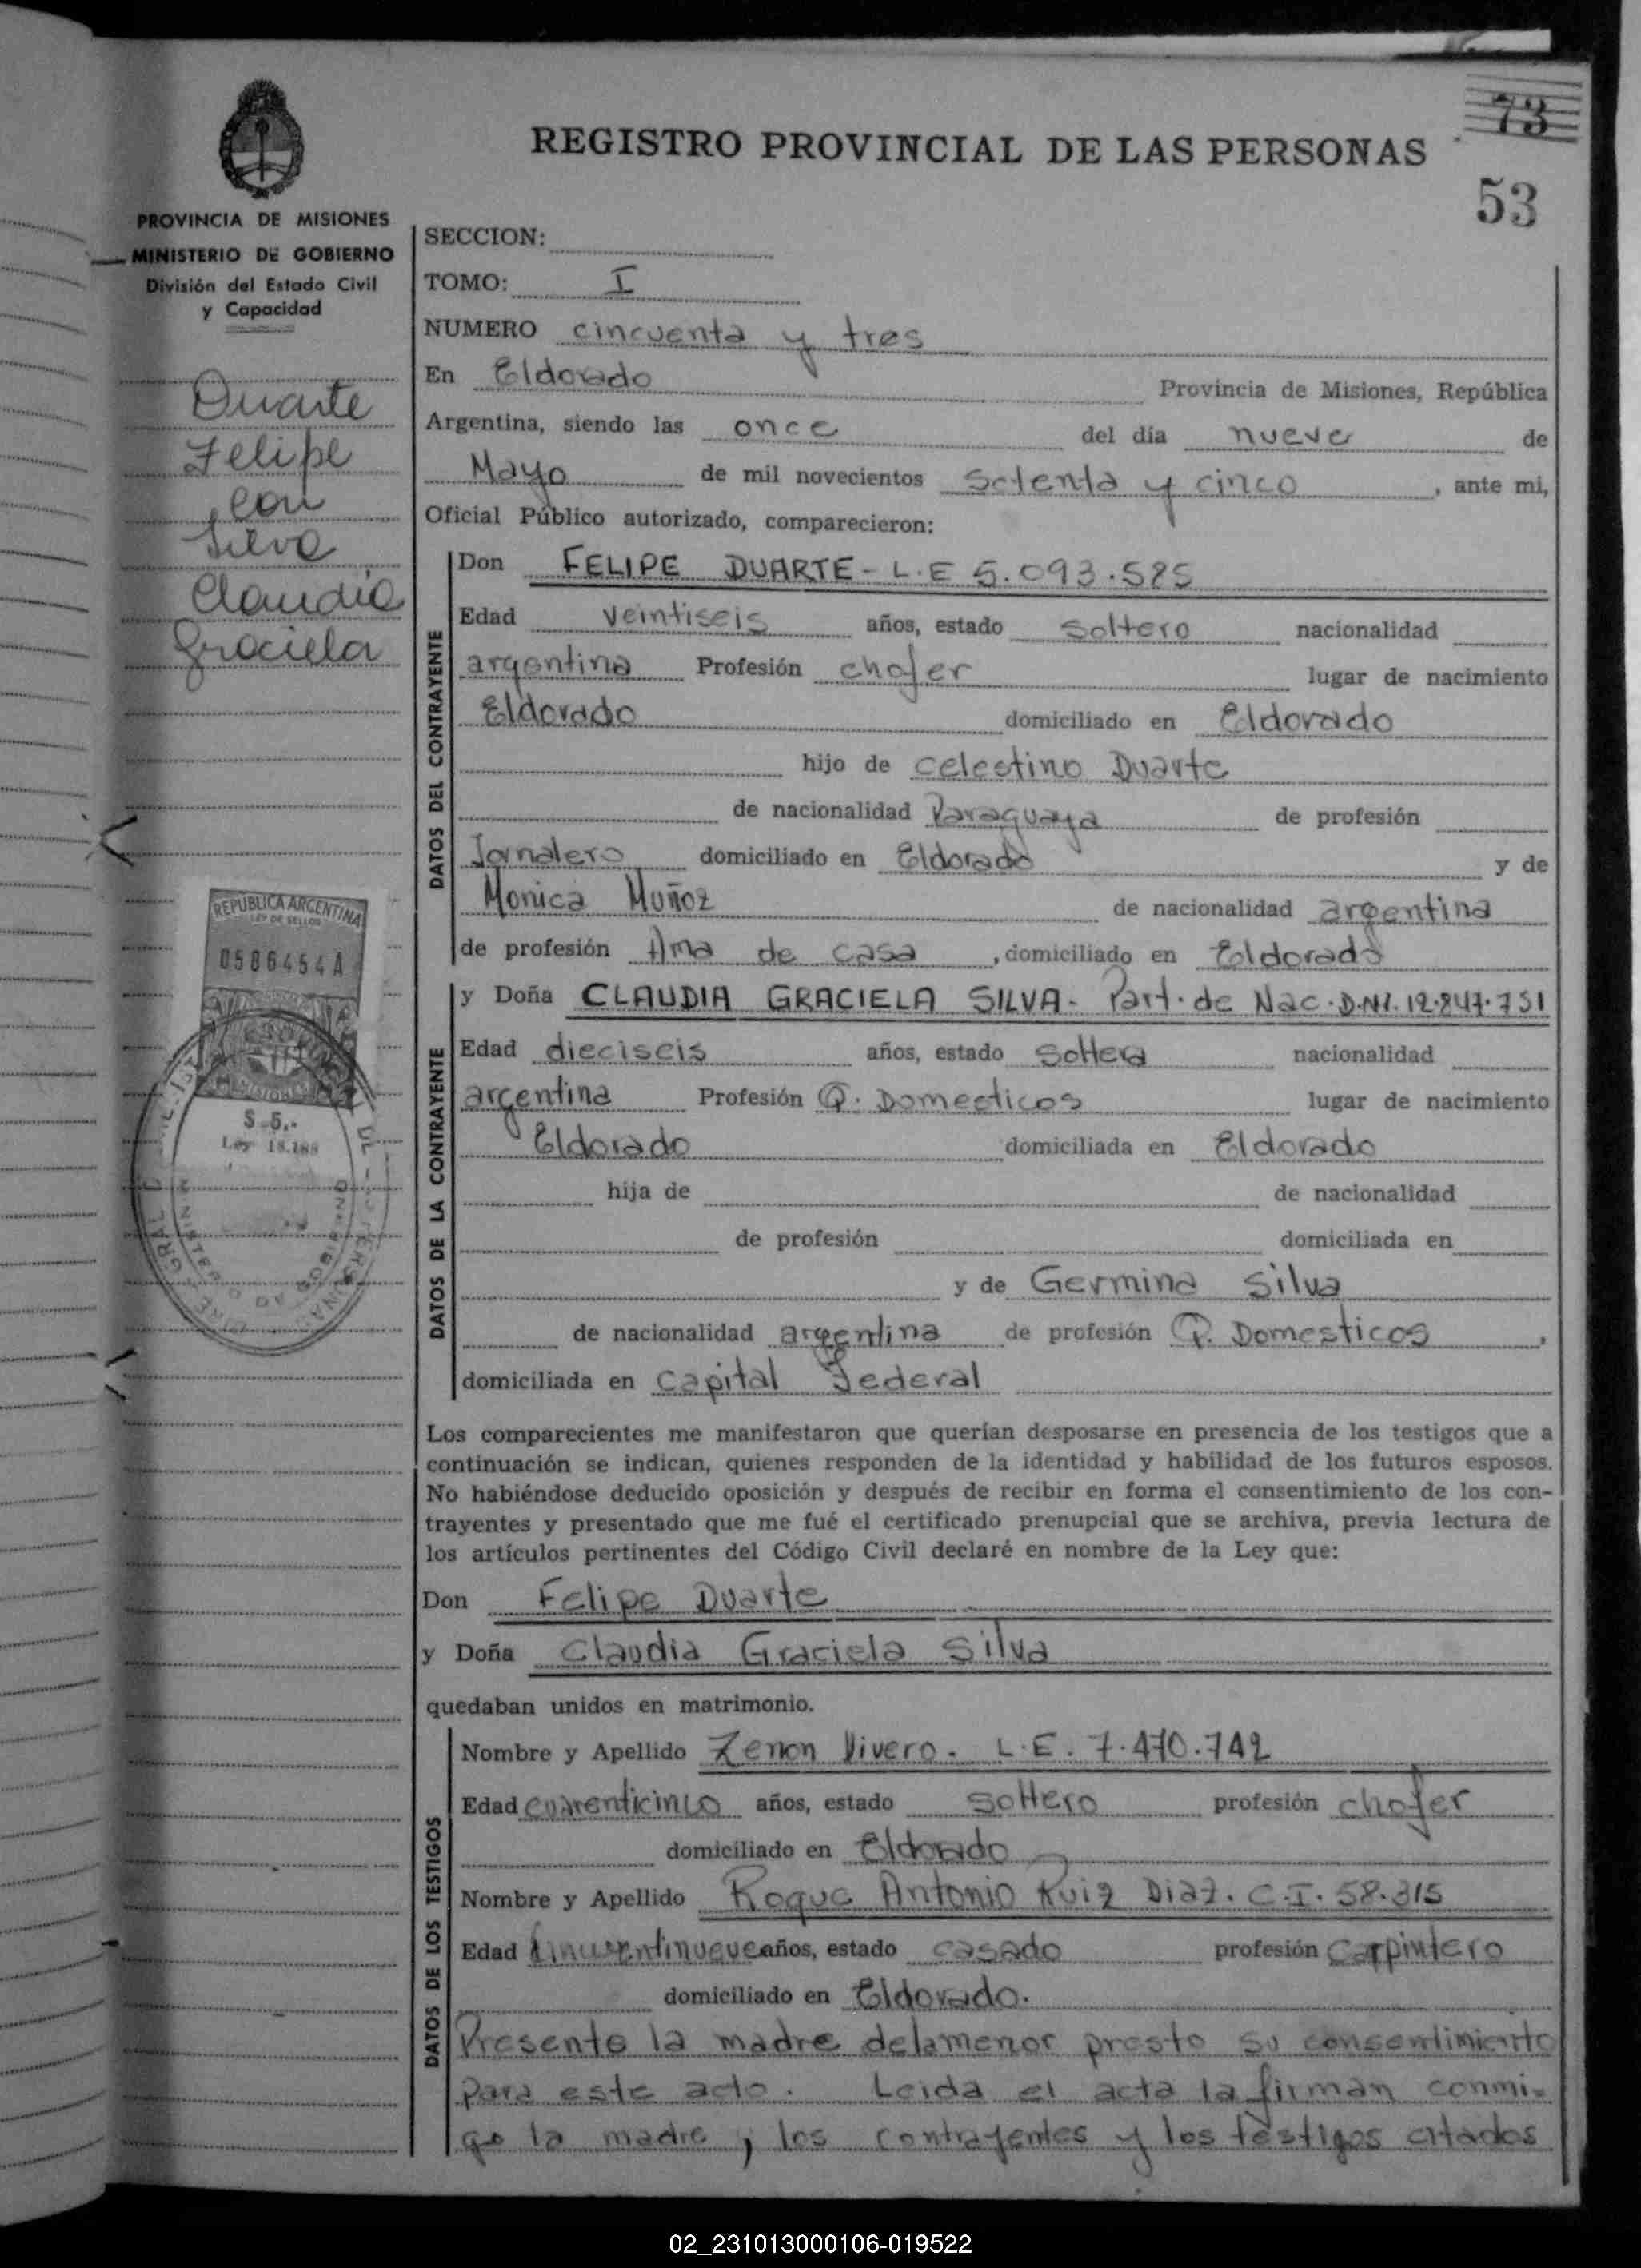 73
REGISTRO PROVINCIAL DE LAS PERSONAS
53
PROVINCIA DE MISIONES
MINISTERIO DE GOBIERNO
División del Estado Civil
y Capacidad
Duarte
Felipe
con
Silva
Claudia
Graciela
REPUBLICA ARGENTINA
LEY DE SELLOS
0586454 A
MISIONES
$ 5.-
Ley 18.188
SECCION:
TOMO: I
NUMERO cincuenta y tres
En Eldorado Provincia de Misiones, República
Argentina, siendo las once del día nueve de
Mayo de mil novecientos setenta y cinco, ante mi,
Oficial Público autorizado, comparecieron:
DATOS DEL CONTRAYENTE
Don FELIPE DUARTE - L.E 5.093.585
Edad veintiseis años, estado soltero nacionalidad
argentina Profesión chofer lugar de nacimiento
Eldorado domiciliado en Eldorado
hijo de Celestino Duarte
de nacionalidad Paraguaya de profesión
Jornalero domiciliado en Eldorado y de
Monica Muñoz de nacionalidad argentina
de profesión Ama de casa, domiciliado en Eldorado
DATOS DE LA CONTRAYENTE
y Doña CLAUDIA GRACIELA SILVA - Part. de Nac. D.NI. 12.847.751
Edad dieciseis años, estado soltera nacionalidad
argentina Profesión Q. Domesticos lugar de nacimiento
Eldorado domiciliada en Eldorado
hija de de nacionalidad
de profesión domiciliada en
y de Germina Silva
de nacionalidad argentina de profesión Q. Domesticos,
domiciliada en Capital Federal
Los comparecientes me manifestaron que querían desposarse en presencia de los testigos que a
continuación se indican, quienes responden de la identidad y habilidad de los futuros esposos.
No habiéndose deducido oposición y después de recibir en forma el consentimiento de los con-
trayentes y presentado que me fué el certificado prenupcial que se archiva, previa lectura de
los artículos pertinentes del Código Civil declaré en nombre de la Ley que:
Don Felipe Duarte
y Doña Claudia Graciela Silva
quedaban unidos en matrimonio.
DATOS DE LOS TESTIGOS
Nombre y Apellido Zenon Vivero. L.E. 7.470.742
Edad cuarenticinco años, estado soltero profesión chofer
domiciliado en Eldorado
Nombre y Apellido Roque Antonio Ruiz Diaz. C.I. 58.315
Edad cincuentinueve años, estado casado profesión Carpintero
domiciliado en Eldorado.
Presente la madre delamenor presto su consentimiento
para este acto. Leida el acta la firman conmi-
go la madre, los contrayentes y los testigos citados
02_231013000106-019522